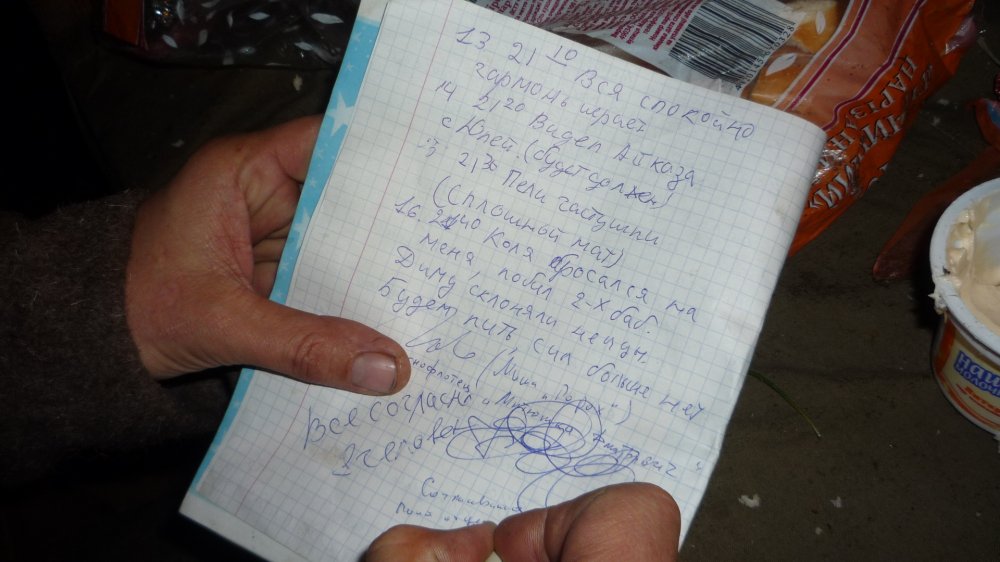 13 21 10 Вся спокойно
гармонь играет
14 21 20 Видел Айказа
с Юлей. (будет должен)
15 21 30 Пели частушки
(Сплошный мат)
16. 21 40 Коля бросался на
меня побил 2-х баб.
Диму склоняли менты.
Будем пить сил больше нет
(Миша "Горох")
снофлотец "Митюшка Дмитрович"
Все согласно
3 человек
НАРІЗ
НАШ
МОЛОЧ